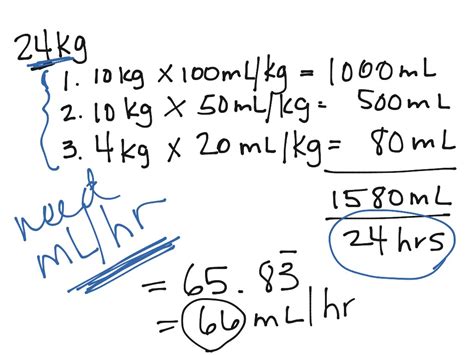 24kg
1. 10kg x 100mL/kg = 1000mL
2. 10 kg x 50mL/kg= 500mL
3. 4kg x 20 mL/kg= 80mL
1580mL
24 hrs
need
mL/hr
= 65.83̅
= 66 mL/hr